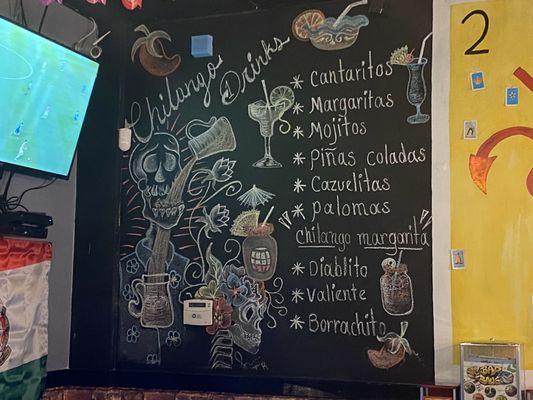 Chilango Drinks
* Cantaritos
* Margaritas
* Mojitos
* Piñas coladas
* Cazuelitas
* Palomas
chilango margarita
* Diablito
* Valiente
* Borrachito
2